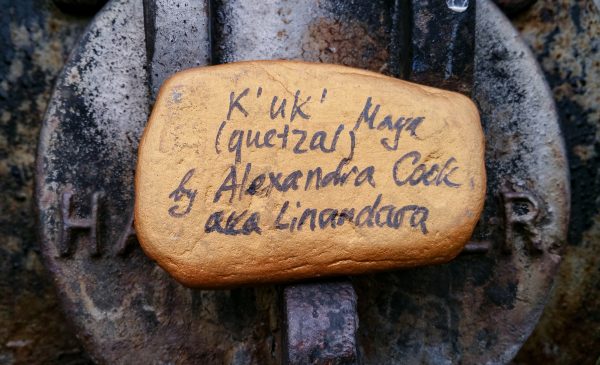 K'uk' Maya
(quetzal)
by Alexandra Cook
aka Linandara